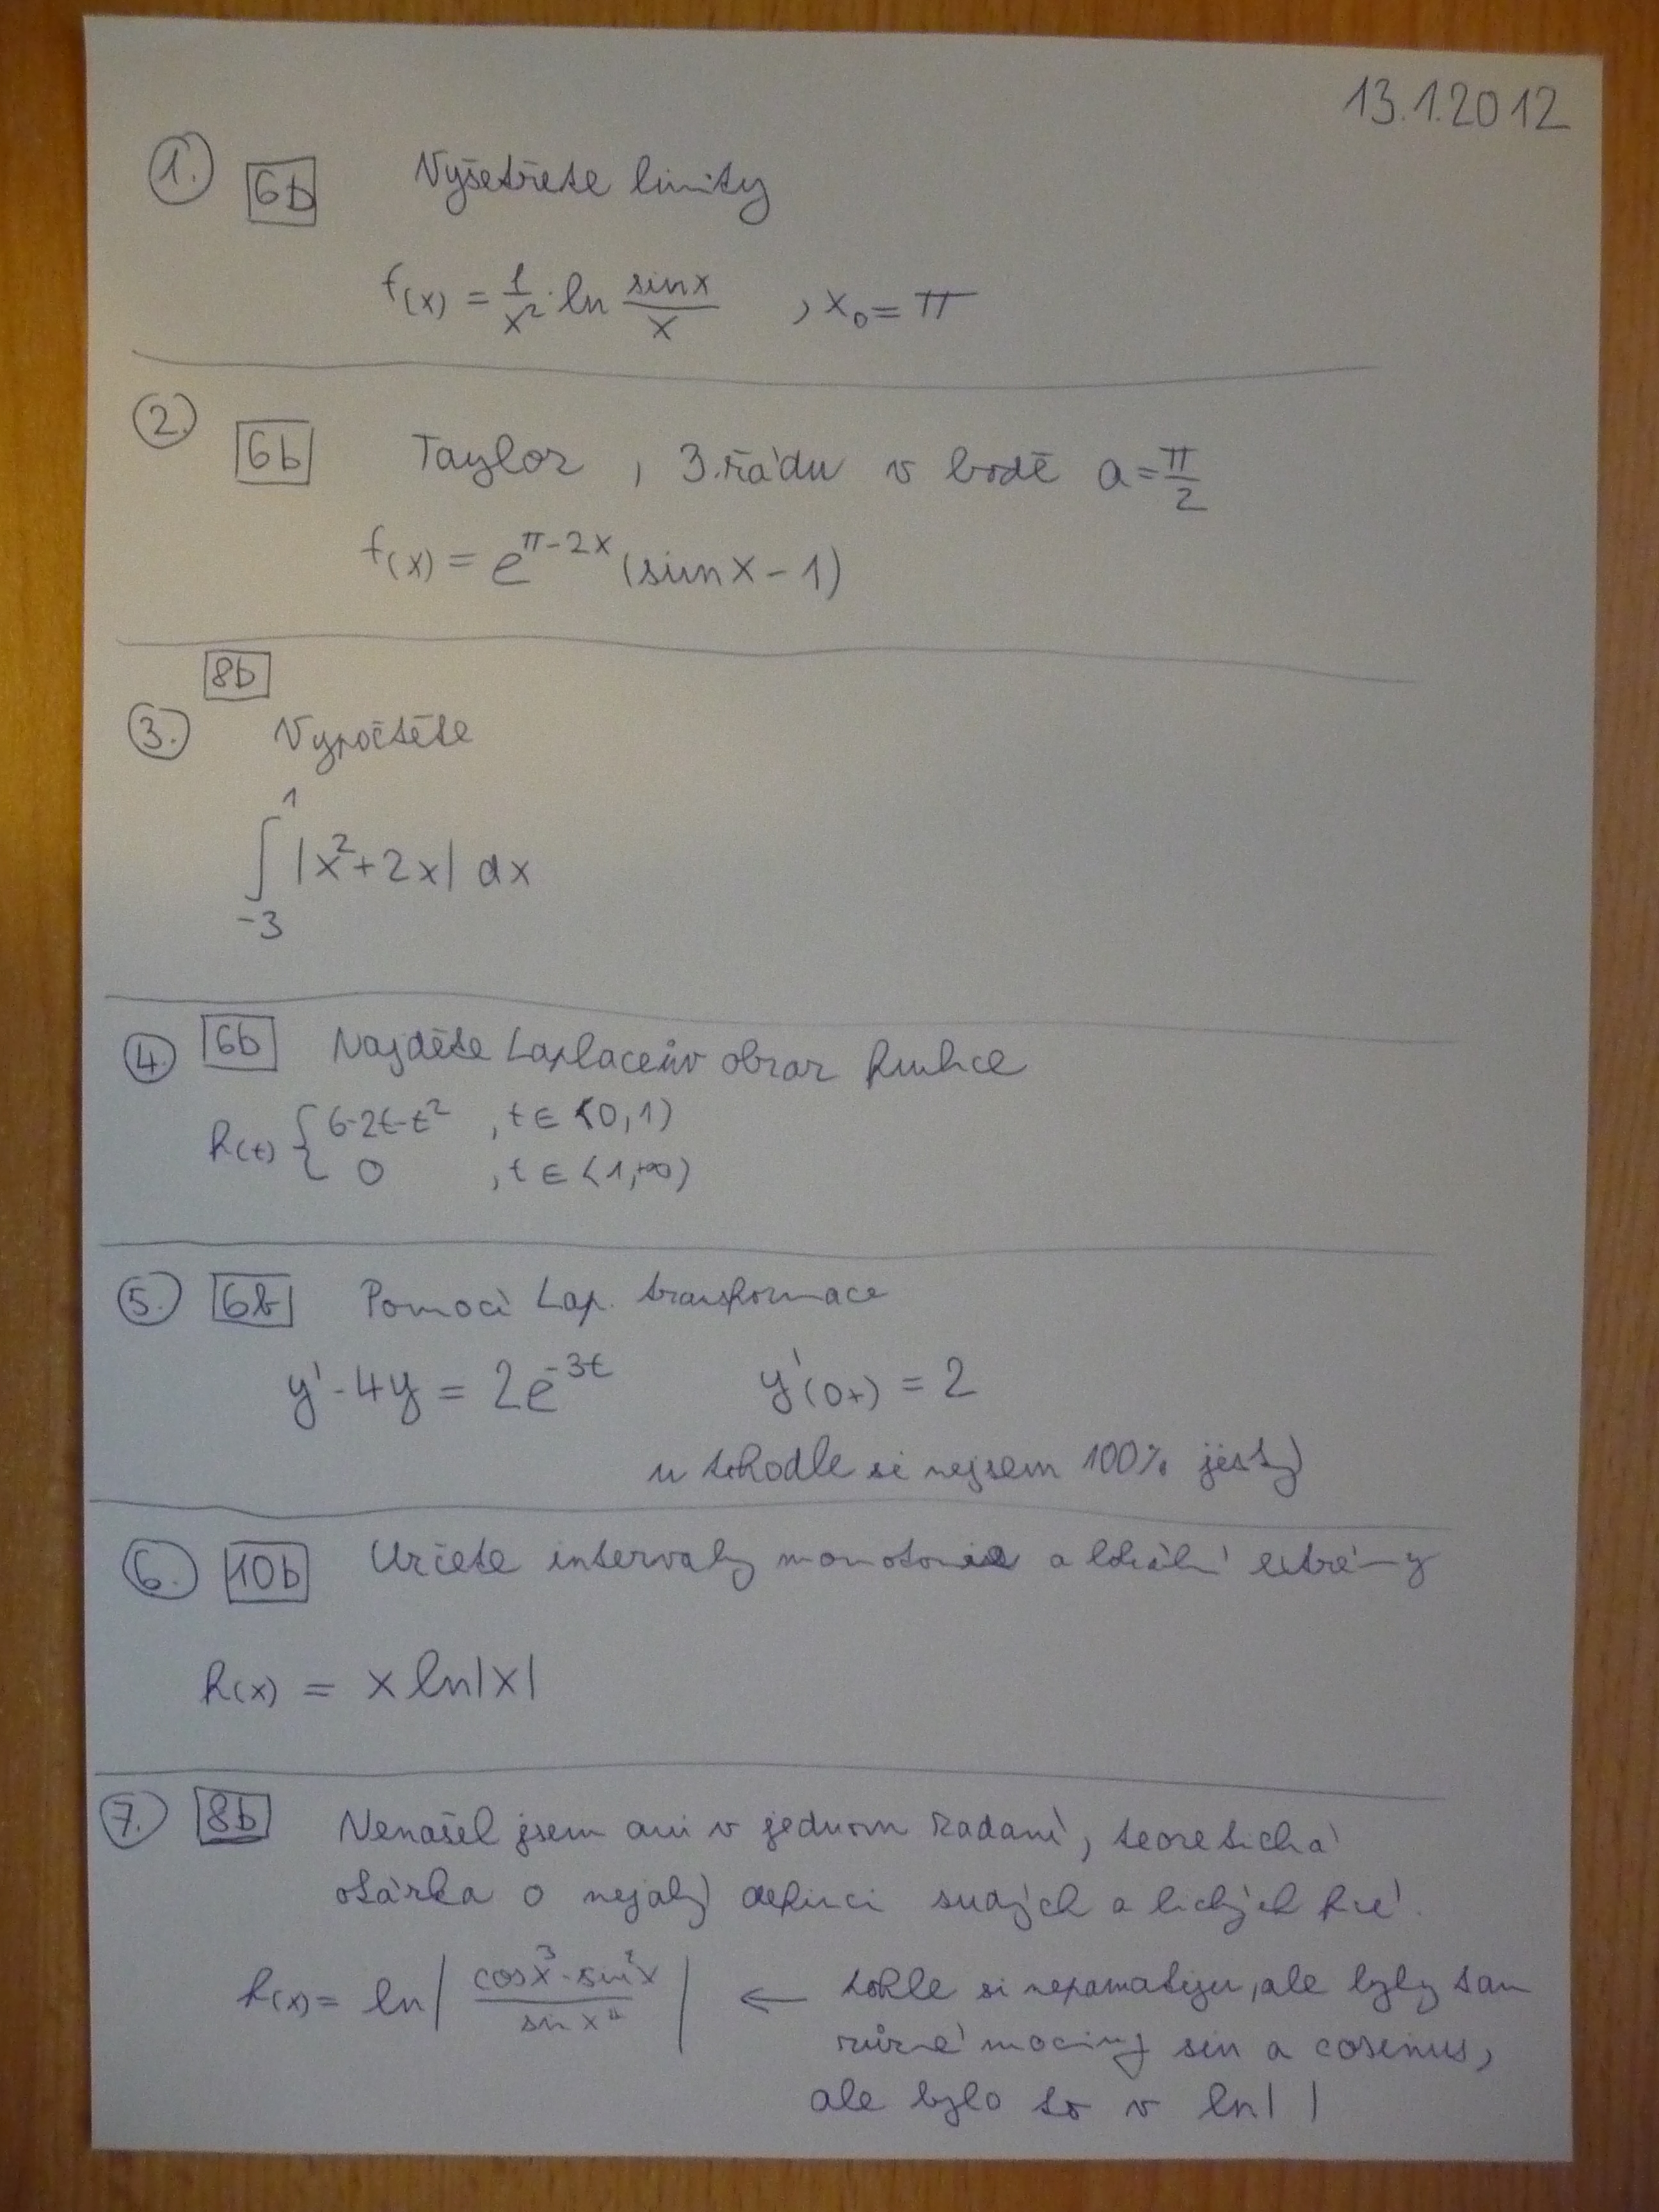 13.1.2012
1. 6b Vyšetřete limity
f(x) = 1/x² · ln sinx/x , x₀ = π
2. 6b Taylor , 3.řádu v bodě a = π/2
f(x) = e^(π-2x) (sin x - 1)
8b
3. Vypočtěte
∫₋₃¹ |x²+2x| dx
4. 6b Najděte Laplaceův obraz funkce
f(t) { 6-2t-t² , t ∈ <0,1)
0 , t ∈ <1,+∞)
5. 6b Pomocí Lap. transformace
y' - 4y = 2e^(-3t) y'(0+) = 2
u tohodle si nejsem 100% jistý
6. 10b Určete intervaly monotonie a lokální extrémy
f(x) = x ln|x|
7. 8b Nenašel jsem ani v jednom zadání, teoretická
otázka o nejaký definici sudých a lichých fcí.
f(x) = ln | cosx³ · sin²x / sin x⁴ | ← tohle si nepamatuju, ale byly tam
různé mocniny sin a cosinus,
ale bylo to v ln| |